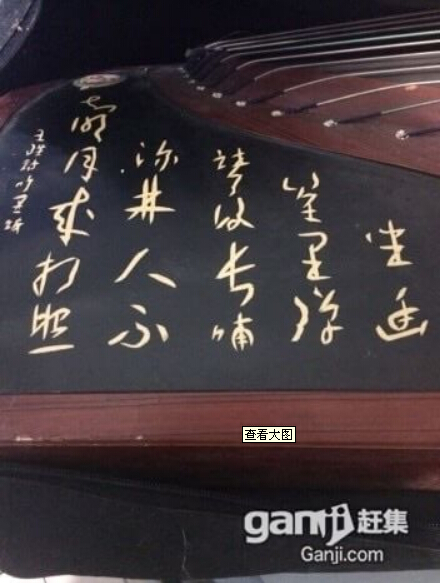 坐幽
篁里弹
琴复长啸
深林人不
知明月来相照
王维诗竹里馆
查看大图
ganji 赶集
Ganji.com